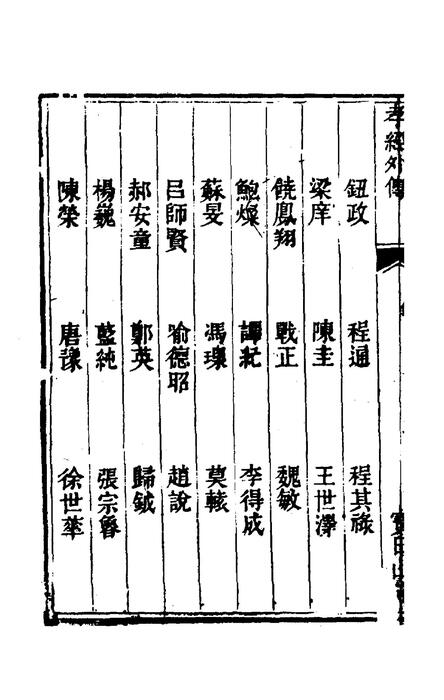 孝經外傳
鈕政 程通 程其祿
梁庠 陳圭 王世澤
饒鳳翔 戰正 魏敏
鮑燦 譚玘 李得成
蘇旻 馮瓌 莫轅
呂師賢 喻德昭 趙說
郝安童 鄭英 歸鉞
楊巍 藍純 張宗魯
陳榮 唐 徐世華